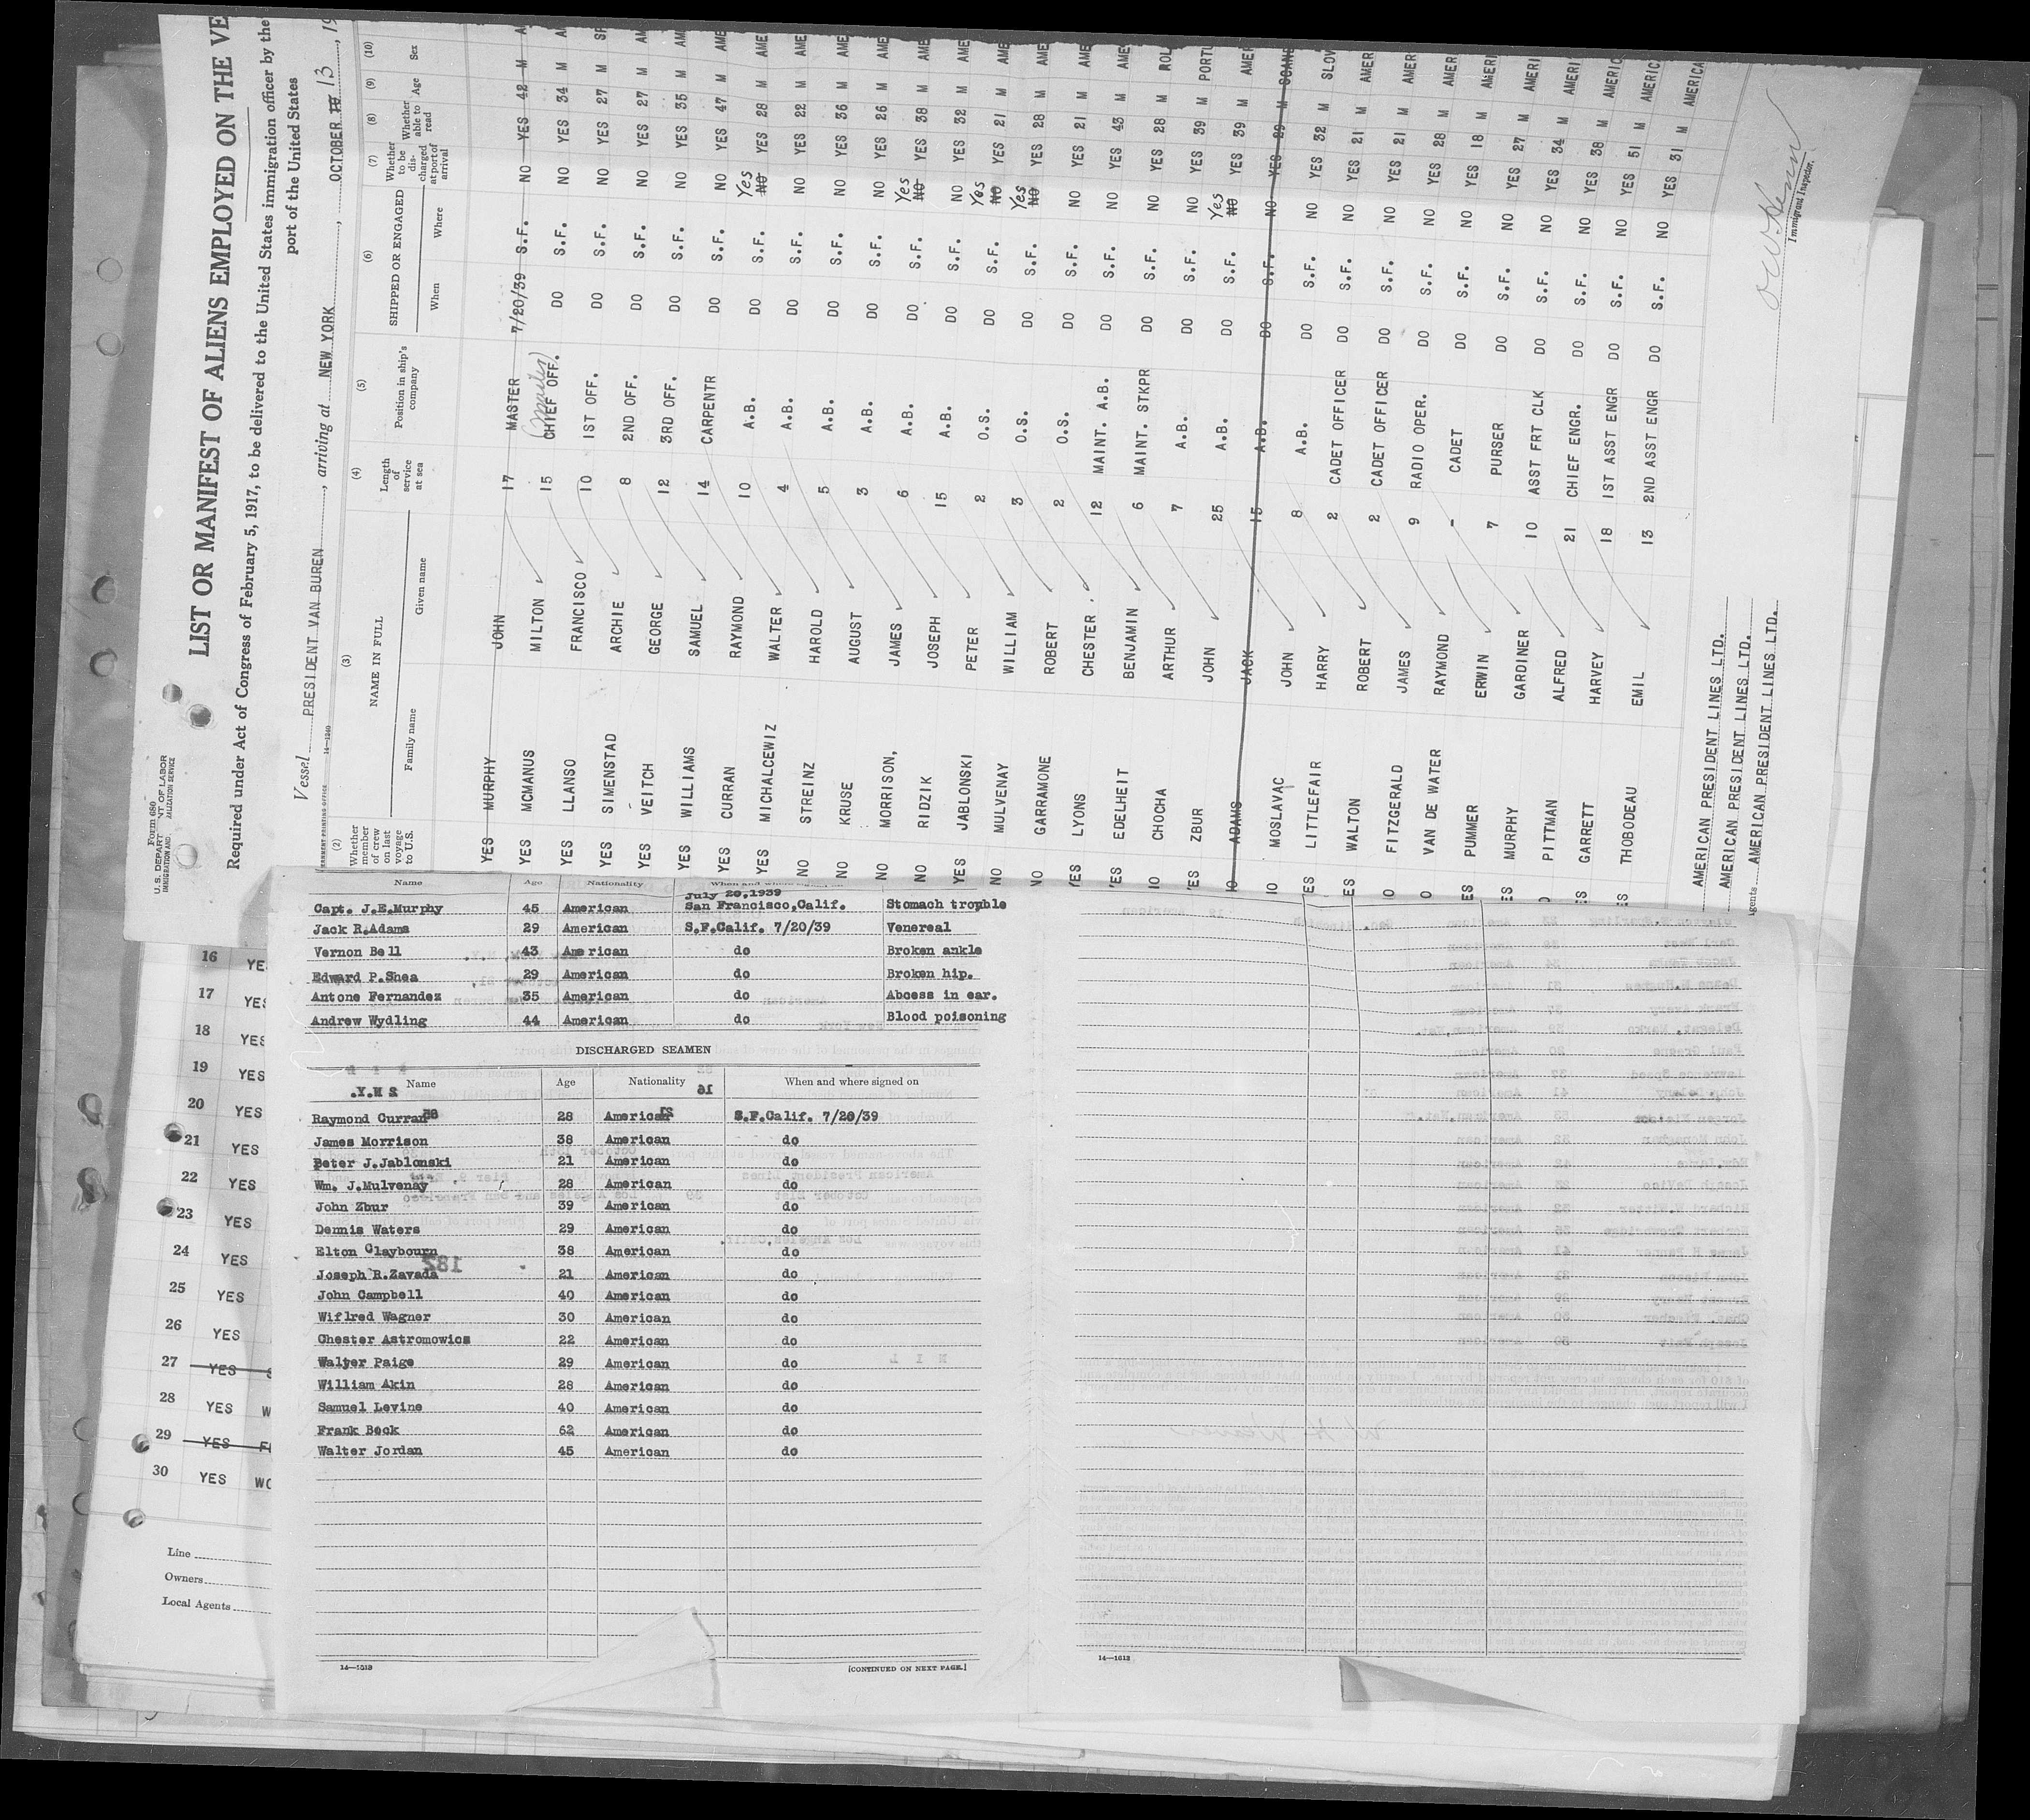 Form 680
U. S. DEPART NT OF LABOR
IMMIGRATION AND ALIZATION SERVICE
LIST OR MANIFEST OF ALIENS EMPLOYED ON THE VE
Required under Act of Congress of February 5, 1917, to be delivered to the United States immigration officer by the
port of the United States
Vessel PRESIDENT VAN BUREN, arriving at NEW YORK, OCTOBER 13, 19
14-1240
(2) (3) (4) (5) (6) (7) (8) (9) (10)
Whether member of crew on last voyage to U.S. NAME IN FULL Family name Given name Length of service at sea Position in ship's company SHIPPED OR ENGAGED When Where Whether to be discharged at port of arrival Whether able to read Age Sex
YES MURPHY JOHN 17 MASTER 7/20/39 S.F. NO YES 42 M A
YES MCMANUS MILTON 15 CHIEF OFF. (Master) DO S.F. NO YES 34 M A
YES LLANSO FRANCISCO 10 1ST OFF. DO S.F. NO YES 27 M SP
YES SIMENSTAD ARCHIE 8 2ND OFF. DO S.F. NO YES 27 M AM
YES VEITCH GEORGE 12 3RD OFF. DO S.F. NO YES 35 M AM
YES WILLIAMS SAMUEL 14 CARPENTR DO S.F. NO YES 47 M AME
YES CURRAN RAYMOND 10 A.B. DO S.F. NO Yes YES 28 M AME
YES MICHALCEWIZ WALTER 4 A.B. DO S.F. NO YES 22 M AME
NO STREINZ HAROLD 5 A.B. DO S.F. NO YES 36 M AME
NO KRUSE AUGUST 3 A.B. DO S.F. NO YES 26 M AME
NO MORRISON, JAMES 6 A.B. DO S.F. NO Yes YES 38 M AME
NO RIDZIK JOSEPH 15 A.B. DO S.F. NO YES 32 M AME
YES JABLONSKI PETER 2 O.S. DO S.F. NO Yes YES 21 M AME
NO MULVENAY WILLIAM 3 O.S. DO S.F. NO Yes YES 28 M AME
NO GARRAMONE ROBERT 2 O.S. DO S.F. NO YES 21 M AME
YES LYONS CHESTER 12 MAINT. A.B. DO S.F. NO YES 43 M AME
YES EDELHEIT BENJAMIN 6 MAINT. STKPR DO S.F. NO YES 28 M
NO CHOCHA ARTHUR 7 A.B. DO S.F. NO YES 39 M PORTU
YES ZBUR JOHN 25 A.B. DO S.F. NO Yes YES 39 M AMER
NO ADAMS JACK 15 A.B. DO S.F. NO YES 29 M
NO MOSLAVAC JOHN 8 A.B. DO S.F. NO YES 32 M SLOV
YES LITTLEFAIR HARRY 2 CADET OFFICER DO S.F. NO YES 21 M AMER
YES WALTON ROBERT 2 CADET OFFICER DO S.F. NO YES 21 M AMER
NO FITZGERALD JAMES 9 RADIO OPER. DO S.F. NO YES 28 M AMER
NO VAN DE WATER RAYMOND - CADET DO S.F. NO YES 18 M AMERI
YES PUMMER ERWIN 7 PURSER DO S.F. NO YES 27 M AMERI
YES MURPHY GARDINER 10 ASST FRT CLK DO S.F. NO YES 34 M AMERI
PITTMAN ALFRED 21 CHIEF ENGR. DO S.F. NO YES 38 M AMERIC
YES GARRETT HARVEY 18 1ST ASST ENGR DO S.F. NO YES 51 M AMERIC
YES THOBODEAU EMIL 13 2ND ASST ENGR DO S.F. NO YES 31 M AMERICA
AMERICAN PRESIDENT LINES LTD.
AMERICAN PRESIDENT LINES LTD.
gents AMERICAN PRESIDENT LINES LTD.
Immigrant Inspector.
Name Age Nationality
Capt. J.E.Murphy 45 American July 20,1939 San Francisco,Calif. Stomach trouble
Jack R.Adams 29 American S.F.Calif. 7/20/39 Venereal
Vernon Bell 43 American do Broken ankle
Edward P.Shea 29 American do Broken hip.
Antone Fernandez 35 American do Abcess in ear.
Andrew Wydling 44 American do Blood poisoning
DISCHARGED SEAMEN
Name Age Nationality When and where signed on
Raymond Curran 28 American S.F.Calif. 7/20/39
James Morrison 38 American do
Peter J.Jablonski 21 American do
Wm. J.Mulvenay 28 American do
John Zbur 39 American do
Dennis Waters 29 American do
Elton Claybourn 38 American do
Joseph R.Zavada 21 American do
John Campbell 40 American do
Wiflred Wagner 30 American do
Chester Astromowics 22 American do
Walter Paige 29 American do
William Akin 28 American do
Samuel Levine 40 American do
Frank Beck 62 American do
Walter Jordan 45 American do
14-1513
[CONTINUED ON NEXT PAGE.]
14-1613
16 YE
17 YES
18 YES
19 YES
20 YES
21 YES
22 YES
23 YES
24 YES
25 YES
26 YES
27 YES
28 YES W
29 YES
30 YES WO
Line
Owners
Local Agents